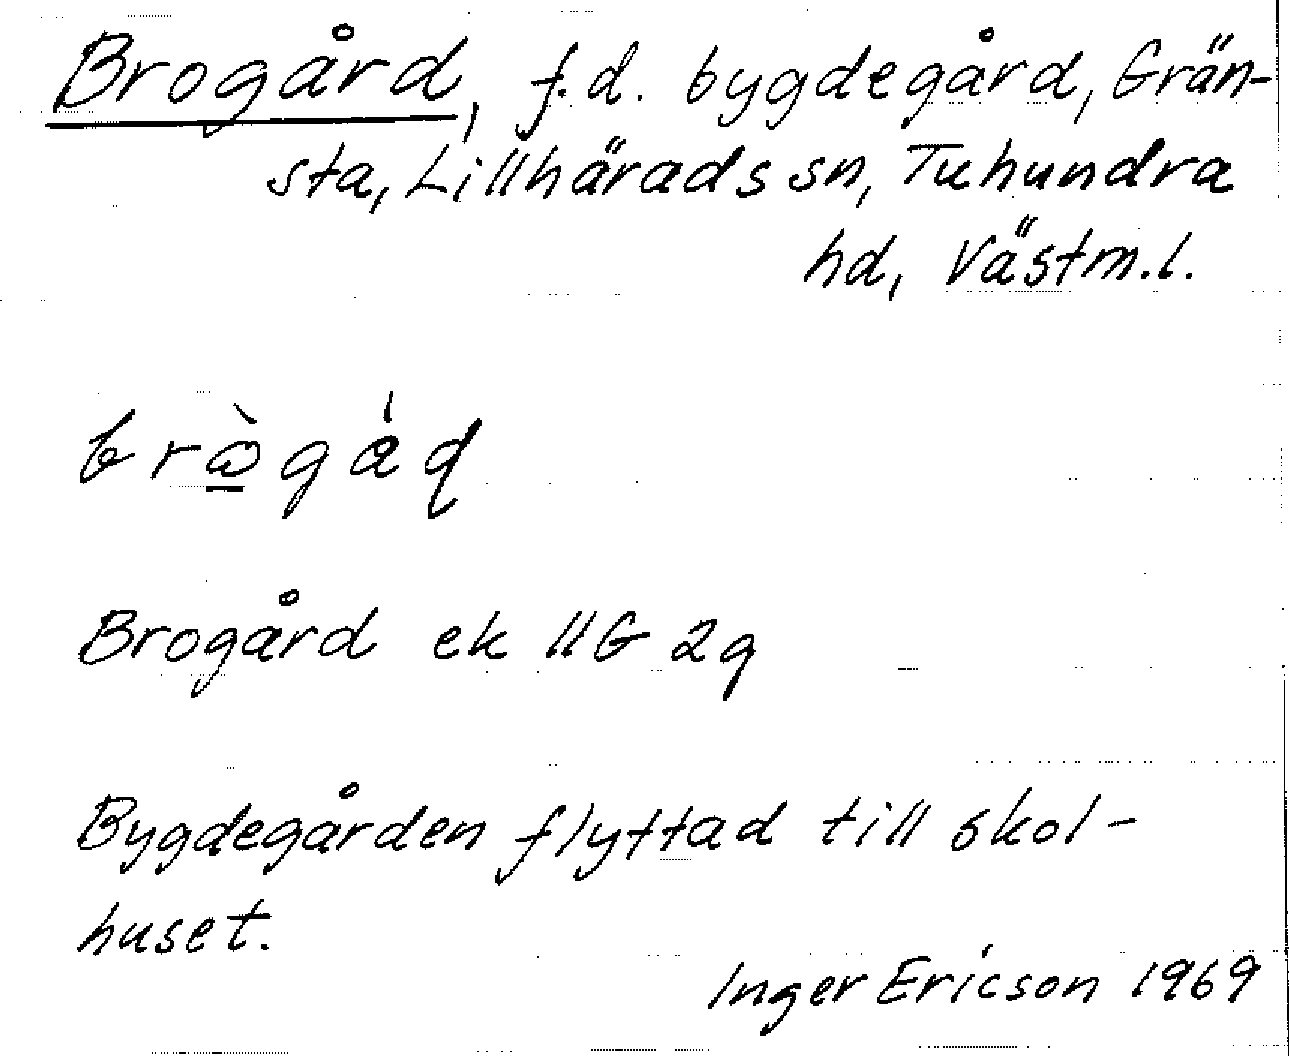 Brogård, f.d. bygdegård, Grän-
sta, Lillhärads sn, Tuhundra
hd, Västm.l.
Brogård ek 11G 2g
Bygdegården flyttad till skol-
huset.
Inger Ericson 1969